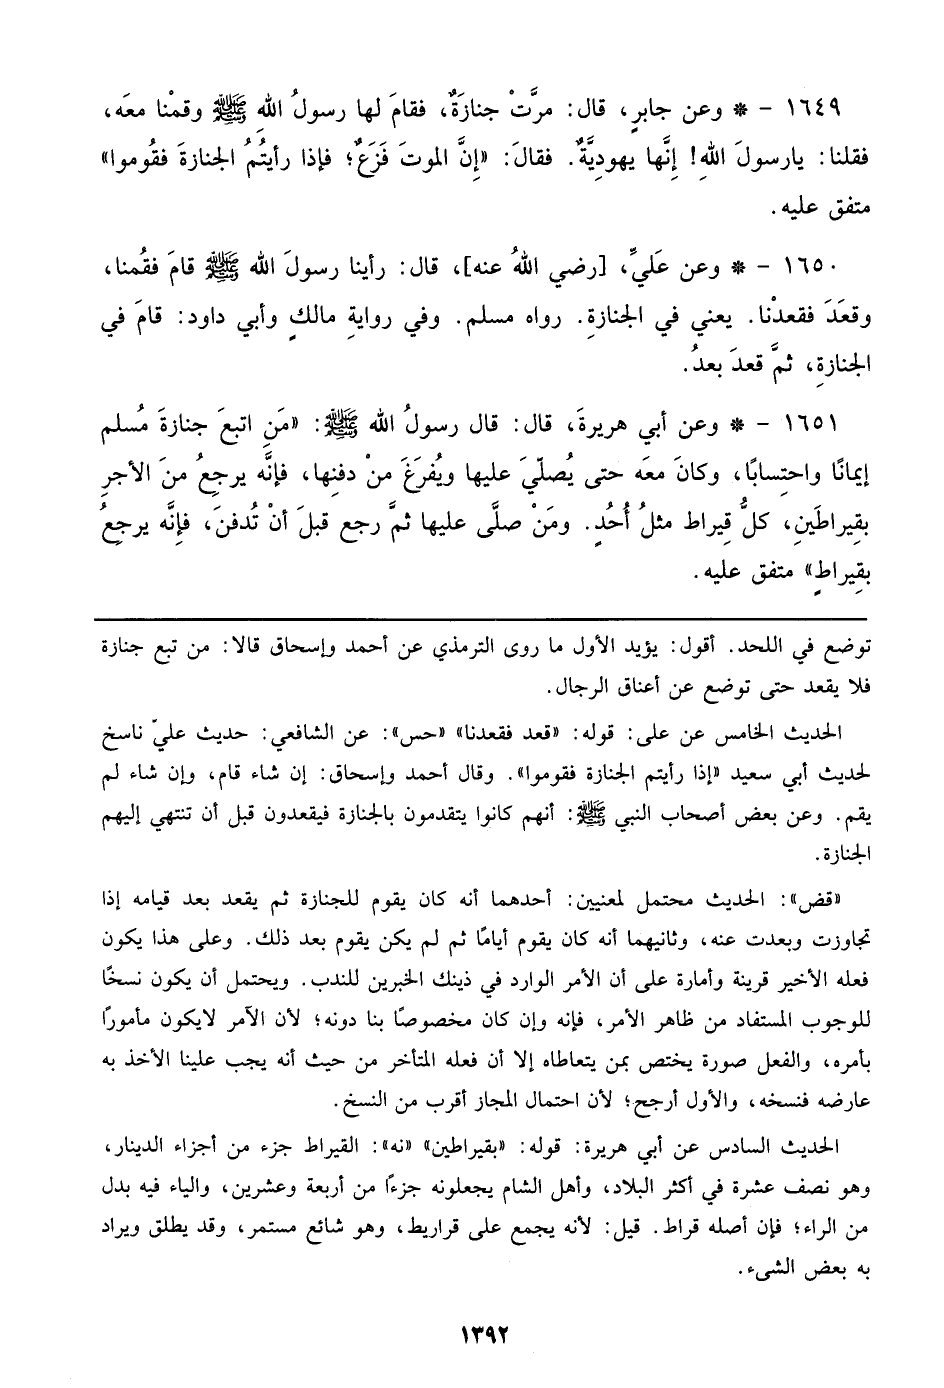 ١٦٤٩ - * وعن جابرٍ، قال: مرَّتْ جنازَةٌ، فقامَ لها رسولُ اللهِ ﷺ وقمْنا معَه،
فقلنا: يارسولَ اللهِ! إِنَّها يهودِيَّةٌ. فقالَ: «إِنَّ الموتَ فَزَعٌ؛ فإذا رأيتُمُ الجنازةَ فقُوموا»
متفق عليه.
١٦٥٠ - * وعن عَليٍّ، [رضي اللهُ عنه]، قال: رأينا رسولَ الله ﷺ قامَ فقُمنا،
وقعَدَ فقعدْنا. يعني في الجنازةِ. رواه مسلم. وفي روايةِ مالكٍ وأبي داود: قامَ في
الجنازةِ، ثمَّ قعدَ بعدُ.
١٦٥١ - * وعن أبي هريرةَ، قال: قال رسولُ الله ﷺ: «مَنِ اتبعَ جنازةَ مُسلم
إيمانًا واحتِسابًا، وكانَ معَه حتى يُصلّيَ عليها ويُفرَغَ منْ دفنِها، فإنَّه يرجعُ منَ الأجرِ
بقِيراطَينِ، كلُّ قِيراط مثلُ أُحُدٍ. ومَنْ صلَّى عليها ثمَّ رجع قبلَ أنْ تُدفنَ، فإنَّه يرجعُ
بقِيراطٍ» متفق عليه.
توضع في اللحد. أقول: يؤيد الأول ما روى الترمذي عن أحمد وإسحاق قالا: من تبع جنازة
فلا يقعد حتى توضع عن أعناق الرجال.
الحديث الخامس عن على: قوله: «قعد فقعدنا» «حس»: عن الشافعي: حديث عليّ ناسخ
لحديث أبي سعيد «إذا رأيتم الجنازة فقوموا». وقال أحمد وإسحاق: إن شاء قام، وإن شاء لم
يقم. وعن بعض أصحاب النبي ﷺ: أنهم كانوا يتقدمون بالجنازة فيقعدون قبل أن تنتهي إليهم
الجنازة.
«قض»: الحديث محتمل لمعنيين: أحدهما أنه كان يقوم للجنازة ثم يقعد بعد قيامه إذا
تجاوزت وبعدت عنه، وثانيهما أنه كان يقوم أيامًا ثم لم يكن يقوم بعد ذلك. وعلى هذا يكون
فعله الأخير قرينة وأمارة على أن الأمر الوارد في ذينك الخبرين للندب. ويحتمل أن يكون نسخًا
للوجوب المستفاد من ظاهر الأمر، فإنه وإن كان مخصوصًا بنا دونه؛ لأن الآمر لايكون مأمورًا
بأمره، والفعل صورة يختص بمن يتعاطاه إلا أن فعله المتأخر من حيث أنه يجب علينا الأخذ به
عارضه فنسخه، والأول أرجح؛ لأن احتمال المجاز أقرب من النسخ.
الحديث السادس عن أبي هريرة: قوله: «بقيراطين» «نه»: القيراط جزء من أجزاء الدينار،
وهو نصف عشرة في أكثر البلاد، وأهل الشام يجعلونه جزءًا من أربعة وعشرين، والياء فيه بدل
من الراء؛ فإن أصله قراط. قيل: لأنه يجمع على قراريط، وهو شائع مستمر، وقد يطلق ويراد
به بعض الشىء.
١٣٩٢